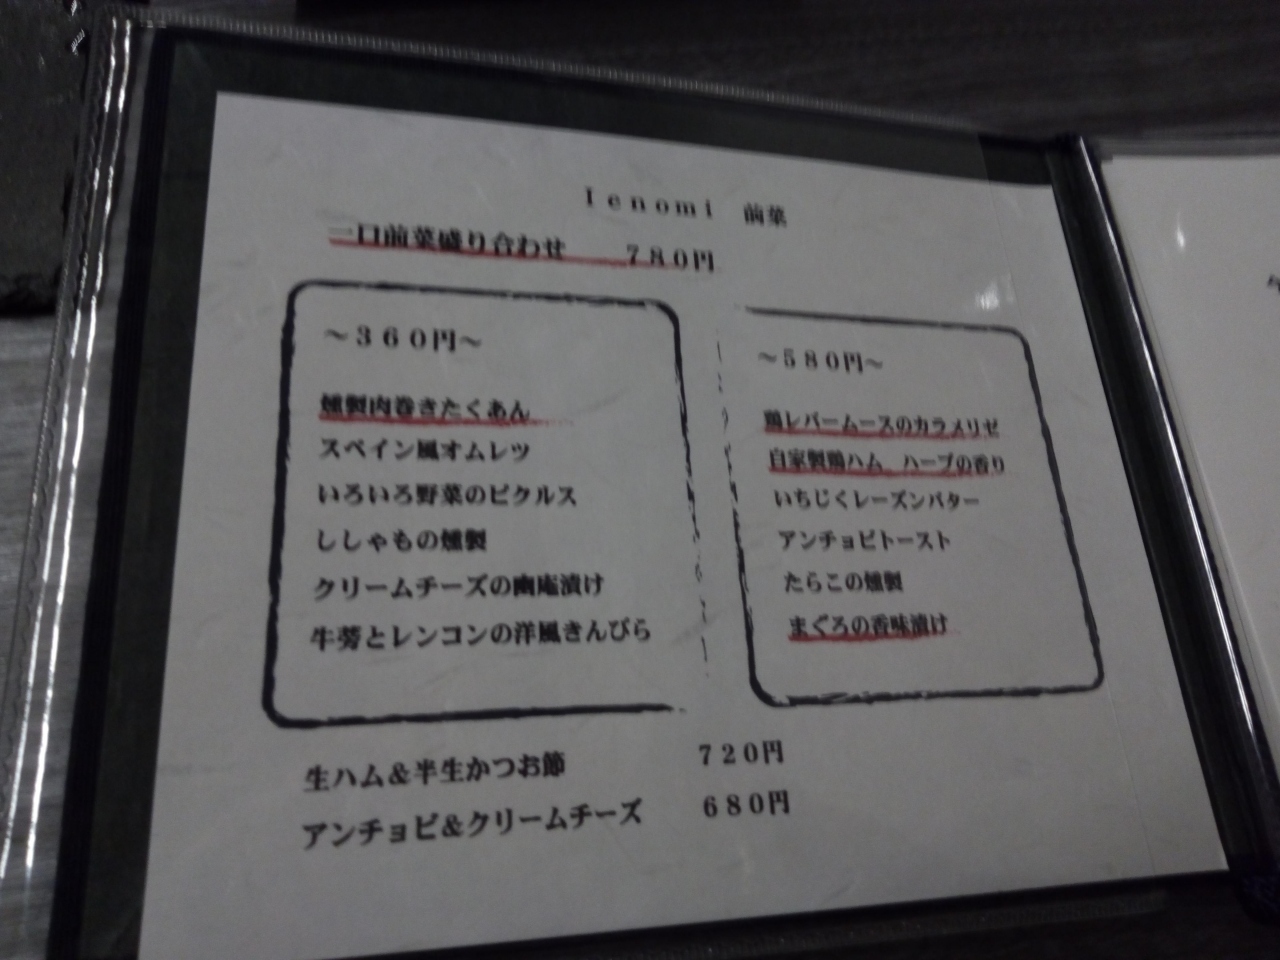 Ienomi 前菜
一口前菜盛り合わせ 780円
～360円～
燻製肉巻きたくあん
スペイン風オムレツ
いろいろ野菜のピクルス
ししゃもの燻製
クリームチーズの幽庵漬け
牛蒡とレンコンの洋風きんぴら
～580円～
鶏レバームースのカラメリゼ
自家製鶏ハム ハーブの香り
いちじくレーズンバター
アンチョビトースト
たらこの燻製
まぐろの香味漬け
生ハム＆半生かつお節 720円
アンチョビ＆クリームチーズ 680円